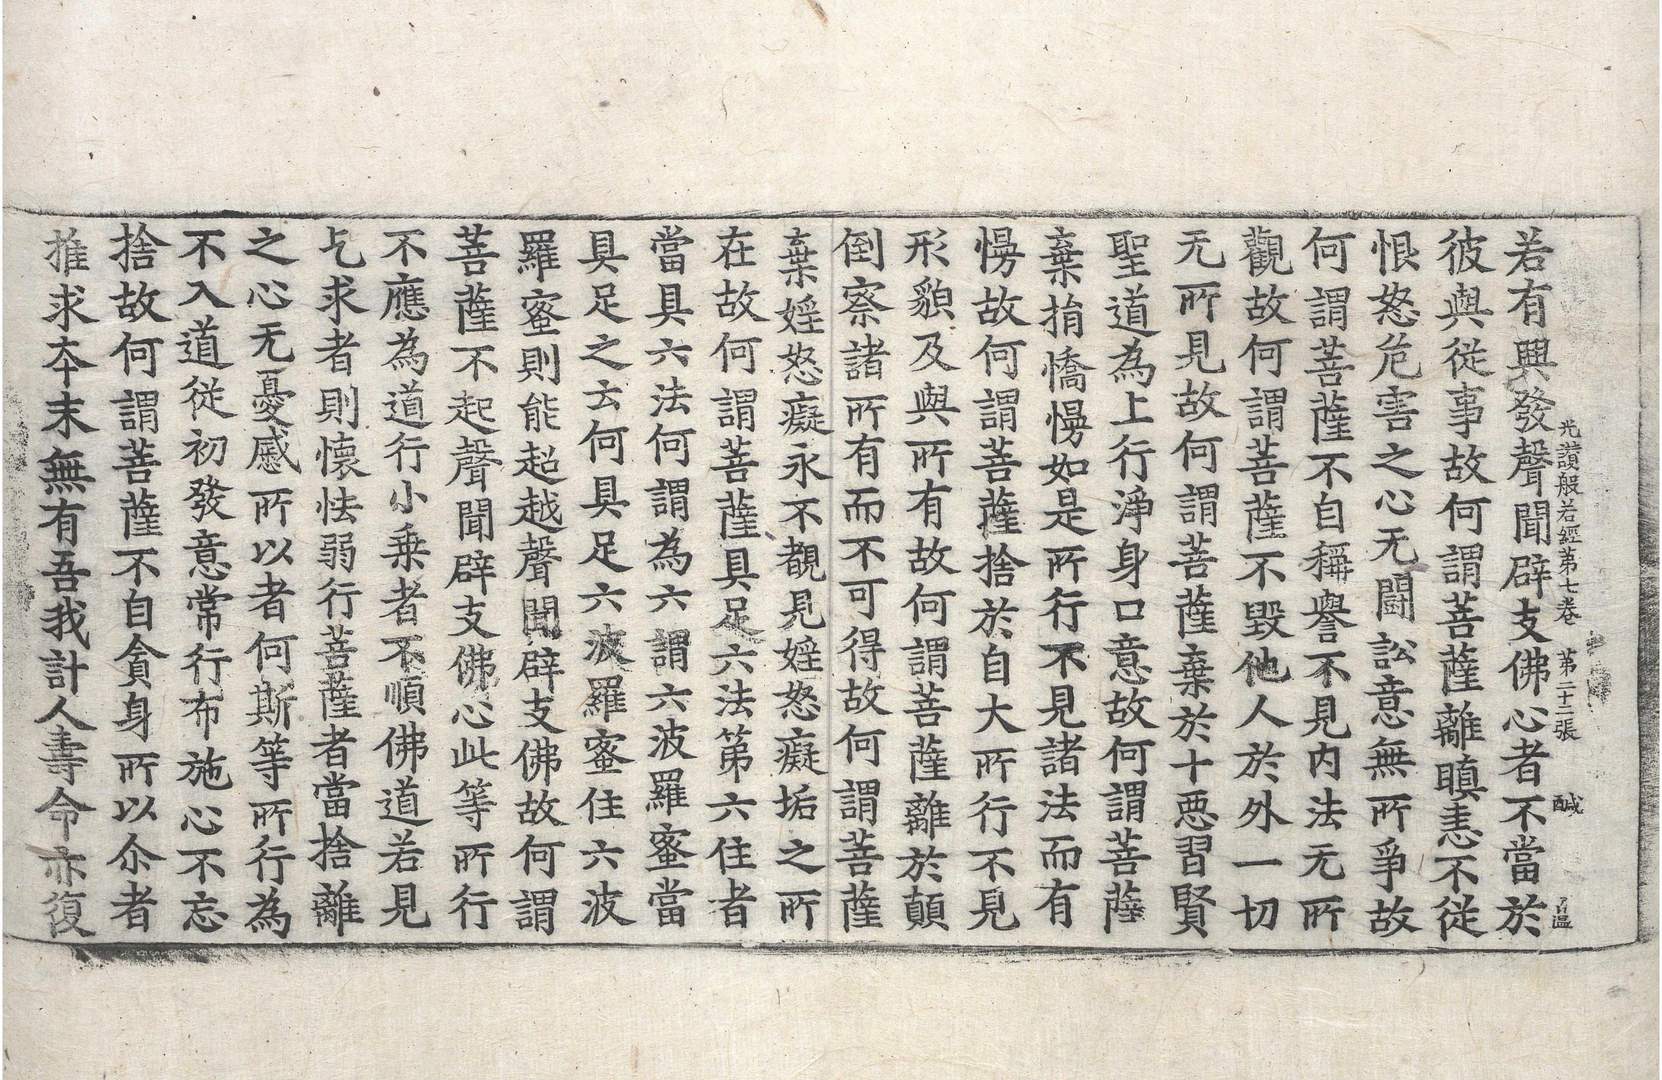 光讚般若經第七卷 第二十二張 醎
若有興發聲聞辟支佛心者不當於
彼與従事故何謂菩薩離瞋恚不従
恨怒危害之心无闘訟意無所爭故
何謂菩薩不自稱譽不見内法无所
觀故何謂菩薩不毀他人於外一切
无所見故何謂菩薩棄於十惡習賢
聖道為上行淨身口意故何謂菩薩
棄捐憍慢如是所行不見諸法而有
慢故何謂菩薩捨於自大所行不見
形貌及與所有故何謂菩薩離於顛
倒察諸所有而不可得故何謂菩薩
棄婬怒癡永不覩見婬怒癡垢之所
在故何謂菩薩具足六法第六住者
當具六法何謂為六謂六波羅蜜當
具足之云何具足六波羅蜜住六波
羅蜜則能超越聲聞辟支佛故何謂
菩薩不起聲聞辟支佛心此等所行
不應為道行小乗者不順佛道若見
乞求者則懷怯弱行菩薩者當捨離
之心无憂慼所以者何斯等所行為
不入道従初發意常行布施心不忘
捨故何謂菩薩不自貪身所以尒者
推求夲末無有吾我計人壽命亦復